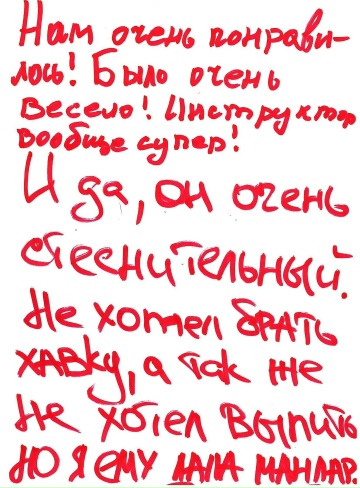 Нам очень понрави-
лось! Было очень
весело! Инструктор
вообще супер!
И да, он очень
стеснительный.
Не хотел брать
хавку, а так же
не хотел выпить
но я ему дала мандар.